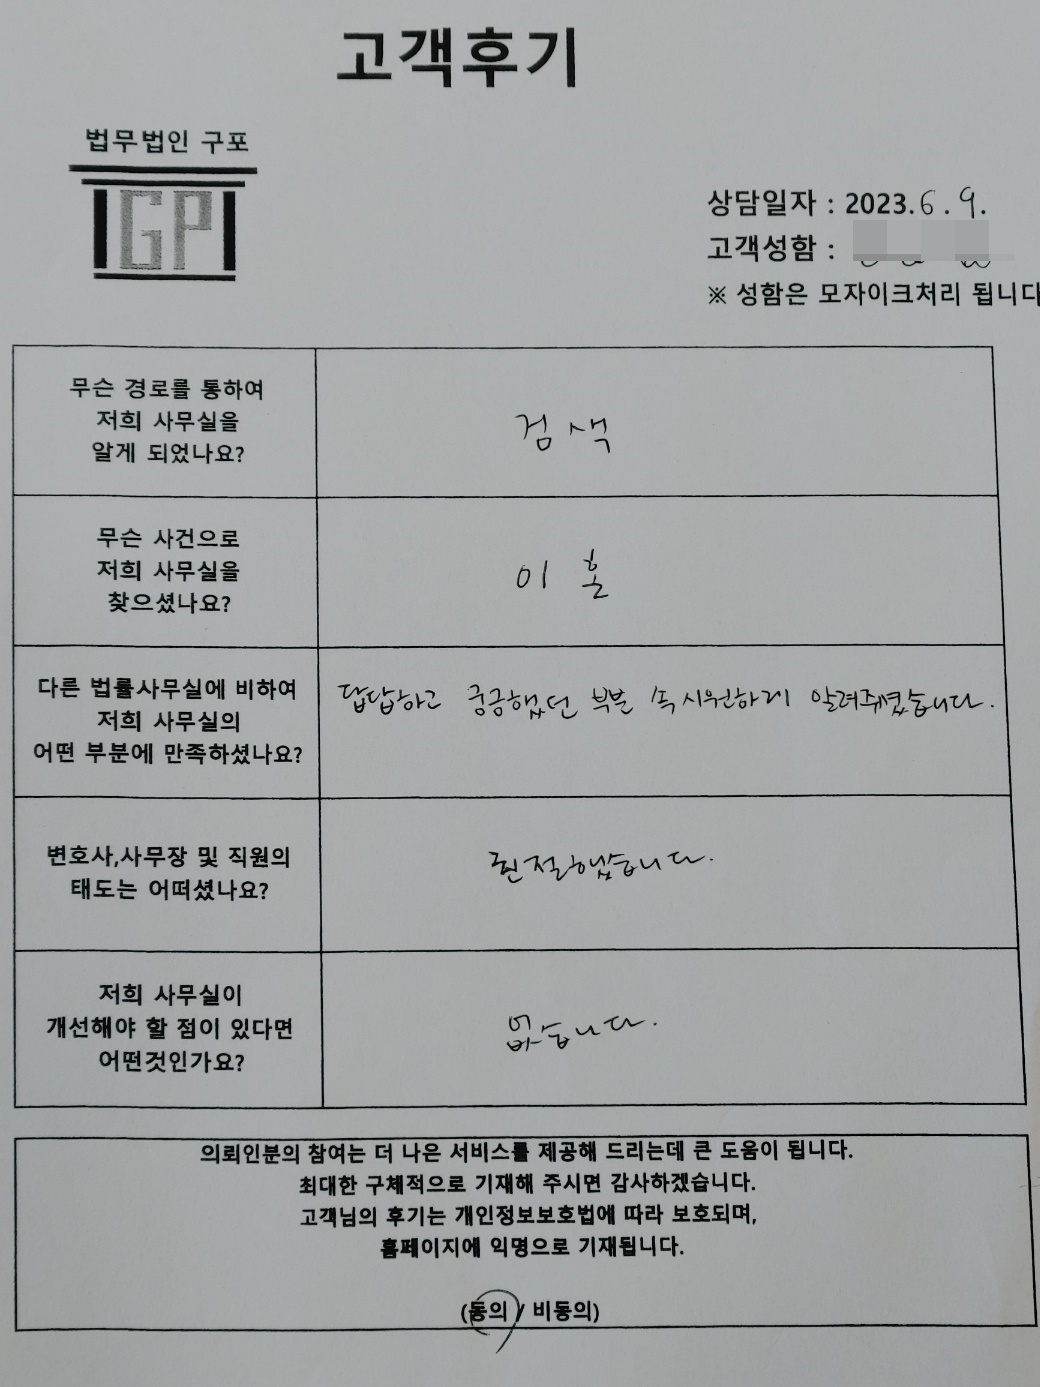 고객후기
법무법인 구포
GP
상담일자 : 2023. 6. 9.
고객성함 :
※ 성함은 모자이크처리 됩니다
무슨 경로를 통하여
저희 사무실을
알게 되었나요?
검색
무슨 사건으로
저희 사무실을
찾으셨나요?
이혼
다른 법률사무실에 비하여
저희 사무실의
어떤 부분에 만족하셨나요?
답답하고 궁금했던 부분 속시원하게 알려주셨습니다.
변호사,사무장 및 직원의
태도는 어떠셨나요?
친절했습니다.
저희 사무실이
개선해야 할 점이 있다면
어떤것인가요?
없습니다.
의뢰인분의 참여는 더 나은 서비스를 제공해 드리는데 큰 도움이 됩니다.
최대한 구체적으로 기재해 주시면 감사하겠습니다.
고객님의 후기는 개인정보보호법에 따라 보호되며,
홈페이지에 익명으로 기재됩니다.
(동의 / 비동의)